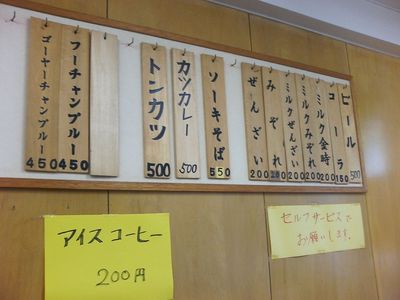 ゴーヤーチャンプルー
450
フーチャンプルー
450
トンカツ
500
カツカレー
500
ソーキそば
550
ぜんざい
200
みぞれ
200
ミルクぜんざい
200
ミルクみぞれ
200
ミルク金時
200
コーラ
150
ビール
500
アイスコーヒー
200円
セルフサービスで
お願いします。